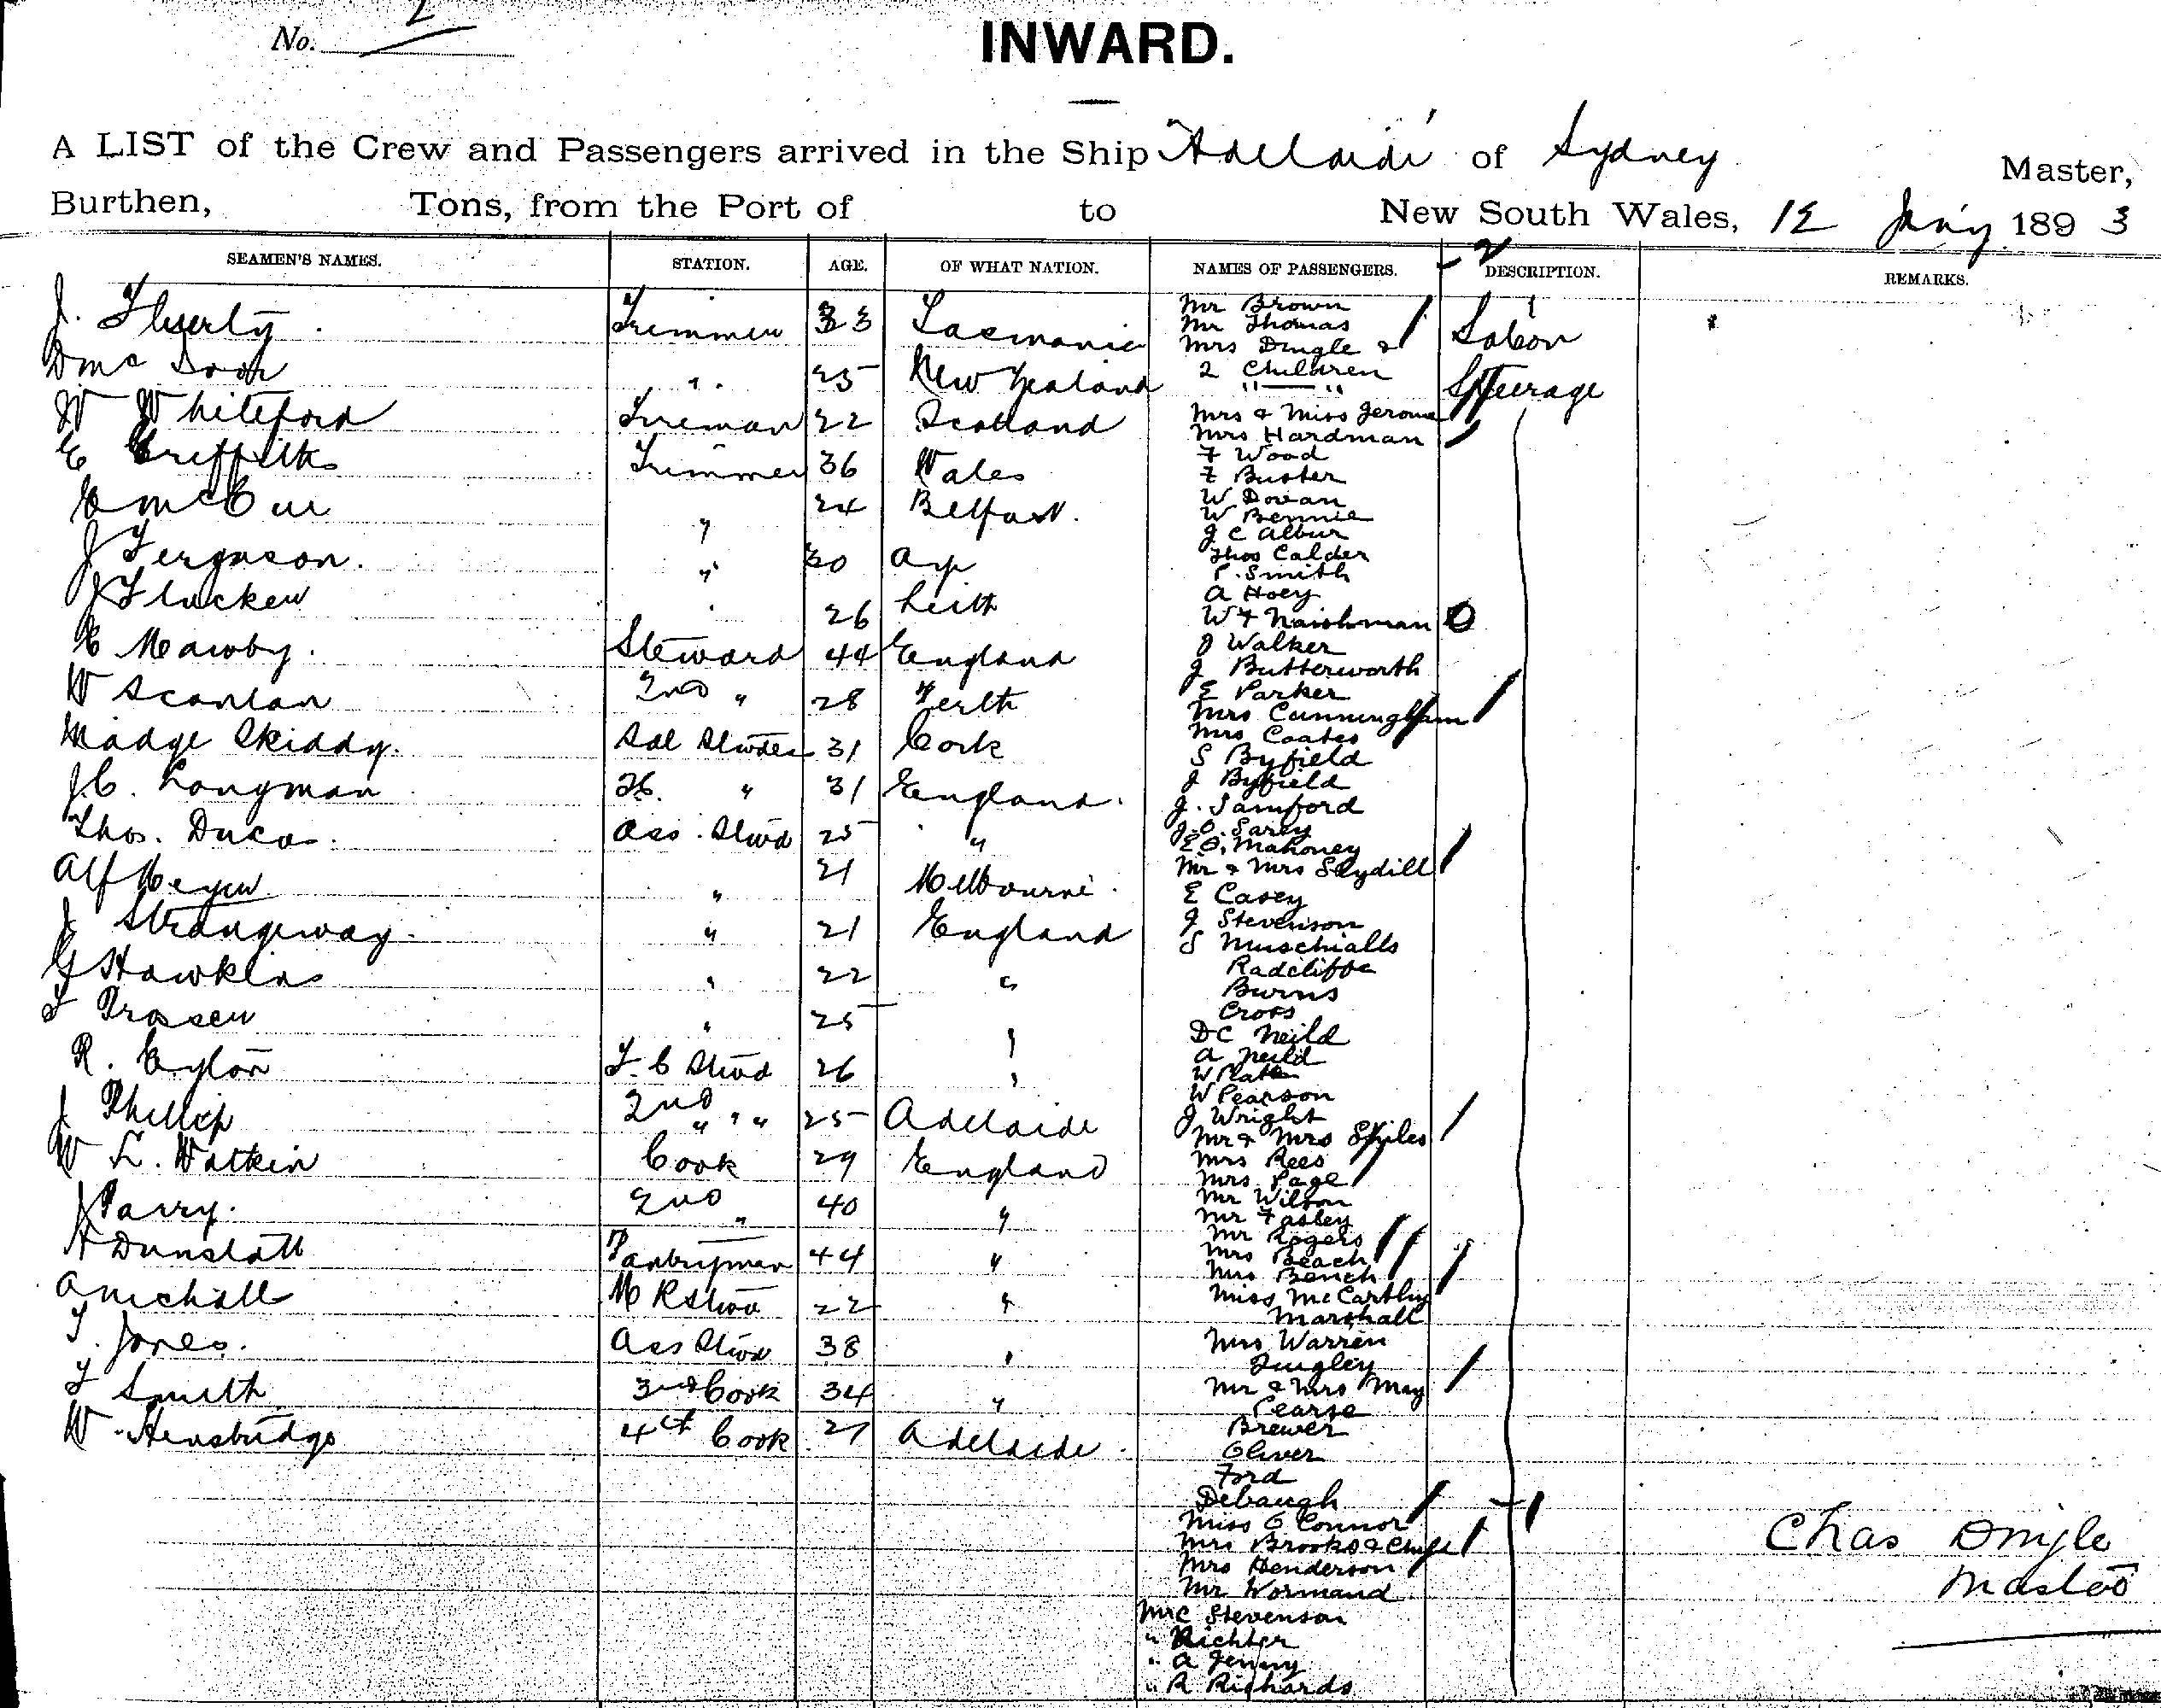 No. 2
INWARD.
A LIST of the Crew and Passengers arrived in the Ship "Adelaide" of Sydney Master,
Burthen, Tons, from the Port of to New South Wales, 12 Jany 1893
SEAMEN'S NAMES. STATION. AGE. OF WHAT NATION. NAMES OF PASSENGERS. DESCRIPTION. REMARKS.
J. Trimmer 33 Tasmania
" 25 New Zealand
W Whiteford Fireman 22 Scotland
E Griffiths Trimmer 36 Wales
" 24 Belfast.
J Ferguson. " 30 Ayr
J 26 Leith
C Mawby. Steward 44 England
W Scanlan 2nd " 28 Perth
Madge Skiddy. Sal Stwdes 31 Cork
J.C. Longman " 31 England.
Thos. Ducas. Ass. Stwd 25 "
Alf Meyer " 21 Melbourne.
J Strangeway. " 21 England
G Hawkins " 22 "
T Prosser " 25 "
R. Stwd 26 "
J Phillip 2nd " " 25 Adelaide
W L. Watkin Cook 29 England
J Parry. 2nd " 40 "
Pantryman 44 "
Stwd 22 "
T. Jones. Ass Stwd 38 "
T Smith 3rd Cook 34 "
W. 4th Cook 27 Adelaide.
Mr Brown
Mr Thomas
Mrs Dingle &
2 Children
" — "
Mrs & Miss Jerome
Mrs Hardman
F Wood
F Buster
W Doran
W Bennie
J C Albur
Thos Calder
P. Smith
A Hoey
W F Naishman
J Walker
J Butterworth
E Parker
Mrs Cunningham
Mrs Coates
S Byfield
J Byfield
J. Samford
J.O. Sarey
E O'Mahoney
Mr & Mrs
E Casey
J Stevenson
S Muschialls
Radcliffe
Burns
Cross
DC Neild
A Neild
W Platt
W Pearson
J Wright
Mr & Mrs Styles
Mrs Rees
Mrs Page
Mr Wilson
Mr Fasley
Mr Rogers
Mrs Beach
Mrs Bench
Miss McCarthy
Marshall
Mrs Warren
Mr & Mrs May
Pearse
Brewer
Oliver
Ford
Debaugh
Miss O Connor
Mrs Brooks & Child
Mrs Henderson
Mr Wormand
Mrc Stevenson
" Richter
" A Jenny
" R Richards
Saloon
Steerage
Chas Dingle
Master